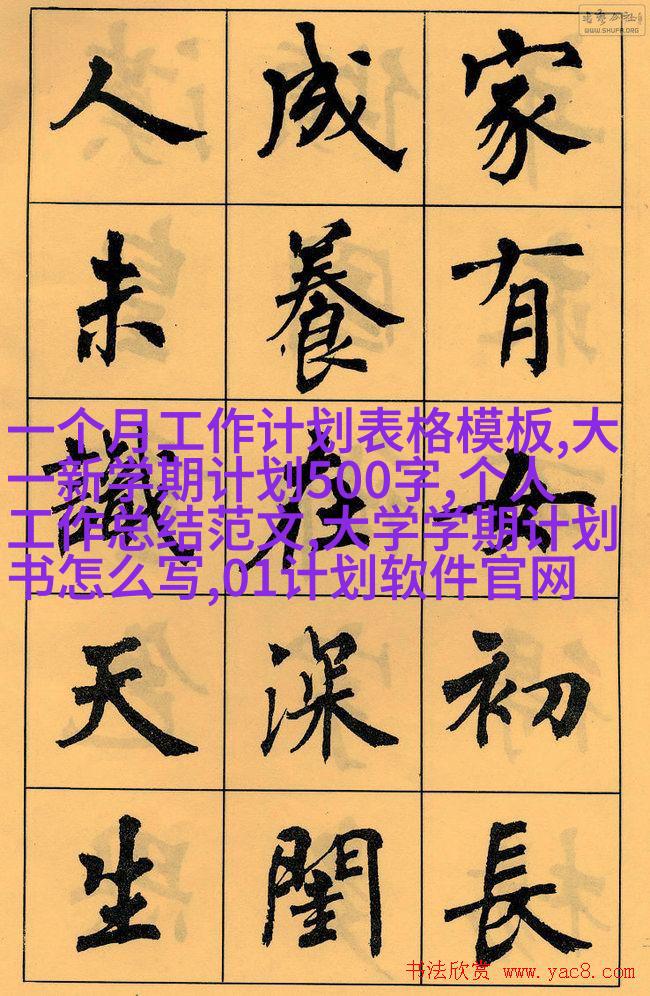 WWW.SHUFA.ORG
家有女初長
成養在深閨
人未識天生
一个月工作计划表格模板,大
一新学期计划500字,个人
工作总结范文,大学学期计划
书怎么写,01计划软件官网
书法欣赏 www.yac8.com